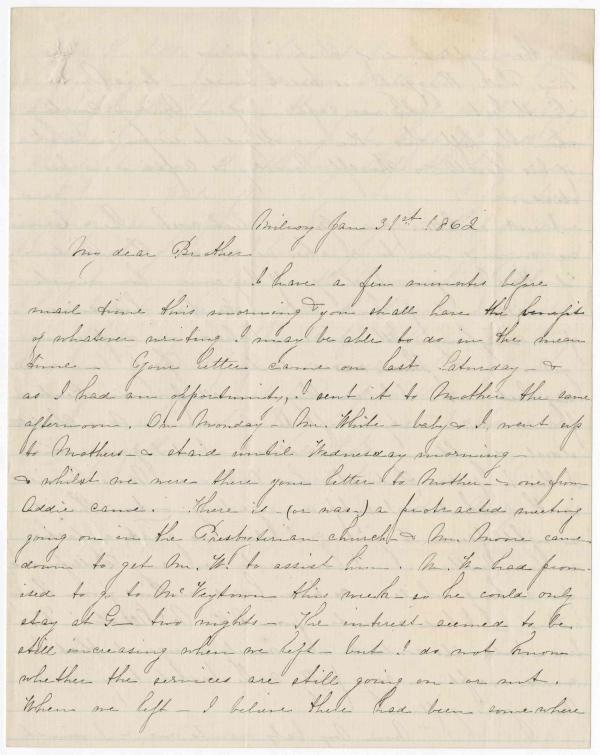 Milroy Jan 31st 1862
My dear Brother
I have a few minutes before
mail time this morning & you shall have the benefit
of whatever writing I may be able to do in the mean
time - Your letter came on last Saturday - &
as I had an opportunity, I sent it to Mother the same
afternoon. On Monday - Mr. White - baby & I went up
to Mothers - & staid until Wednesday morning -
& whilst we were there your letter to Mother - & one from
Addie came. There is - (or was -) a protracted meeting
going on in the Presbyterian church - & Mr. Moore came
down to get Mr. W. to assist him. Mr. W - had prom-
ised to go to McVeytown this week - so he could only
stay at G - two nights - The interest seemed to be
still increasing when we left - but I do not know
whether the services are still going on - or not.
When we left - I believe there had been some where